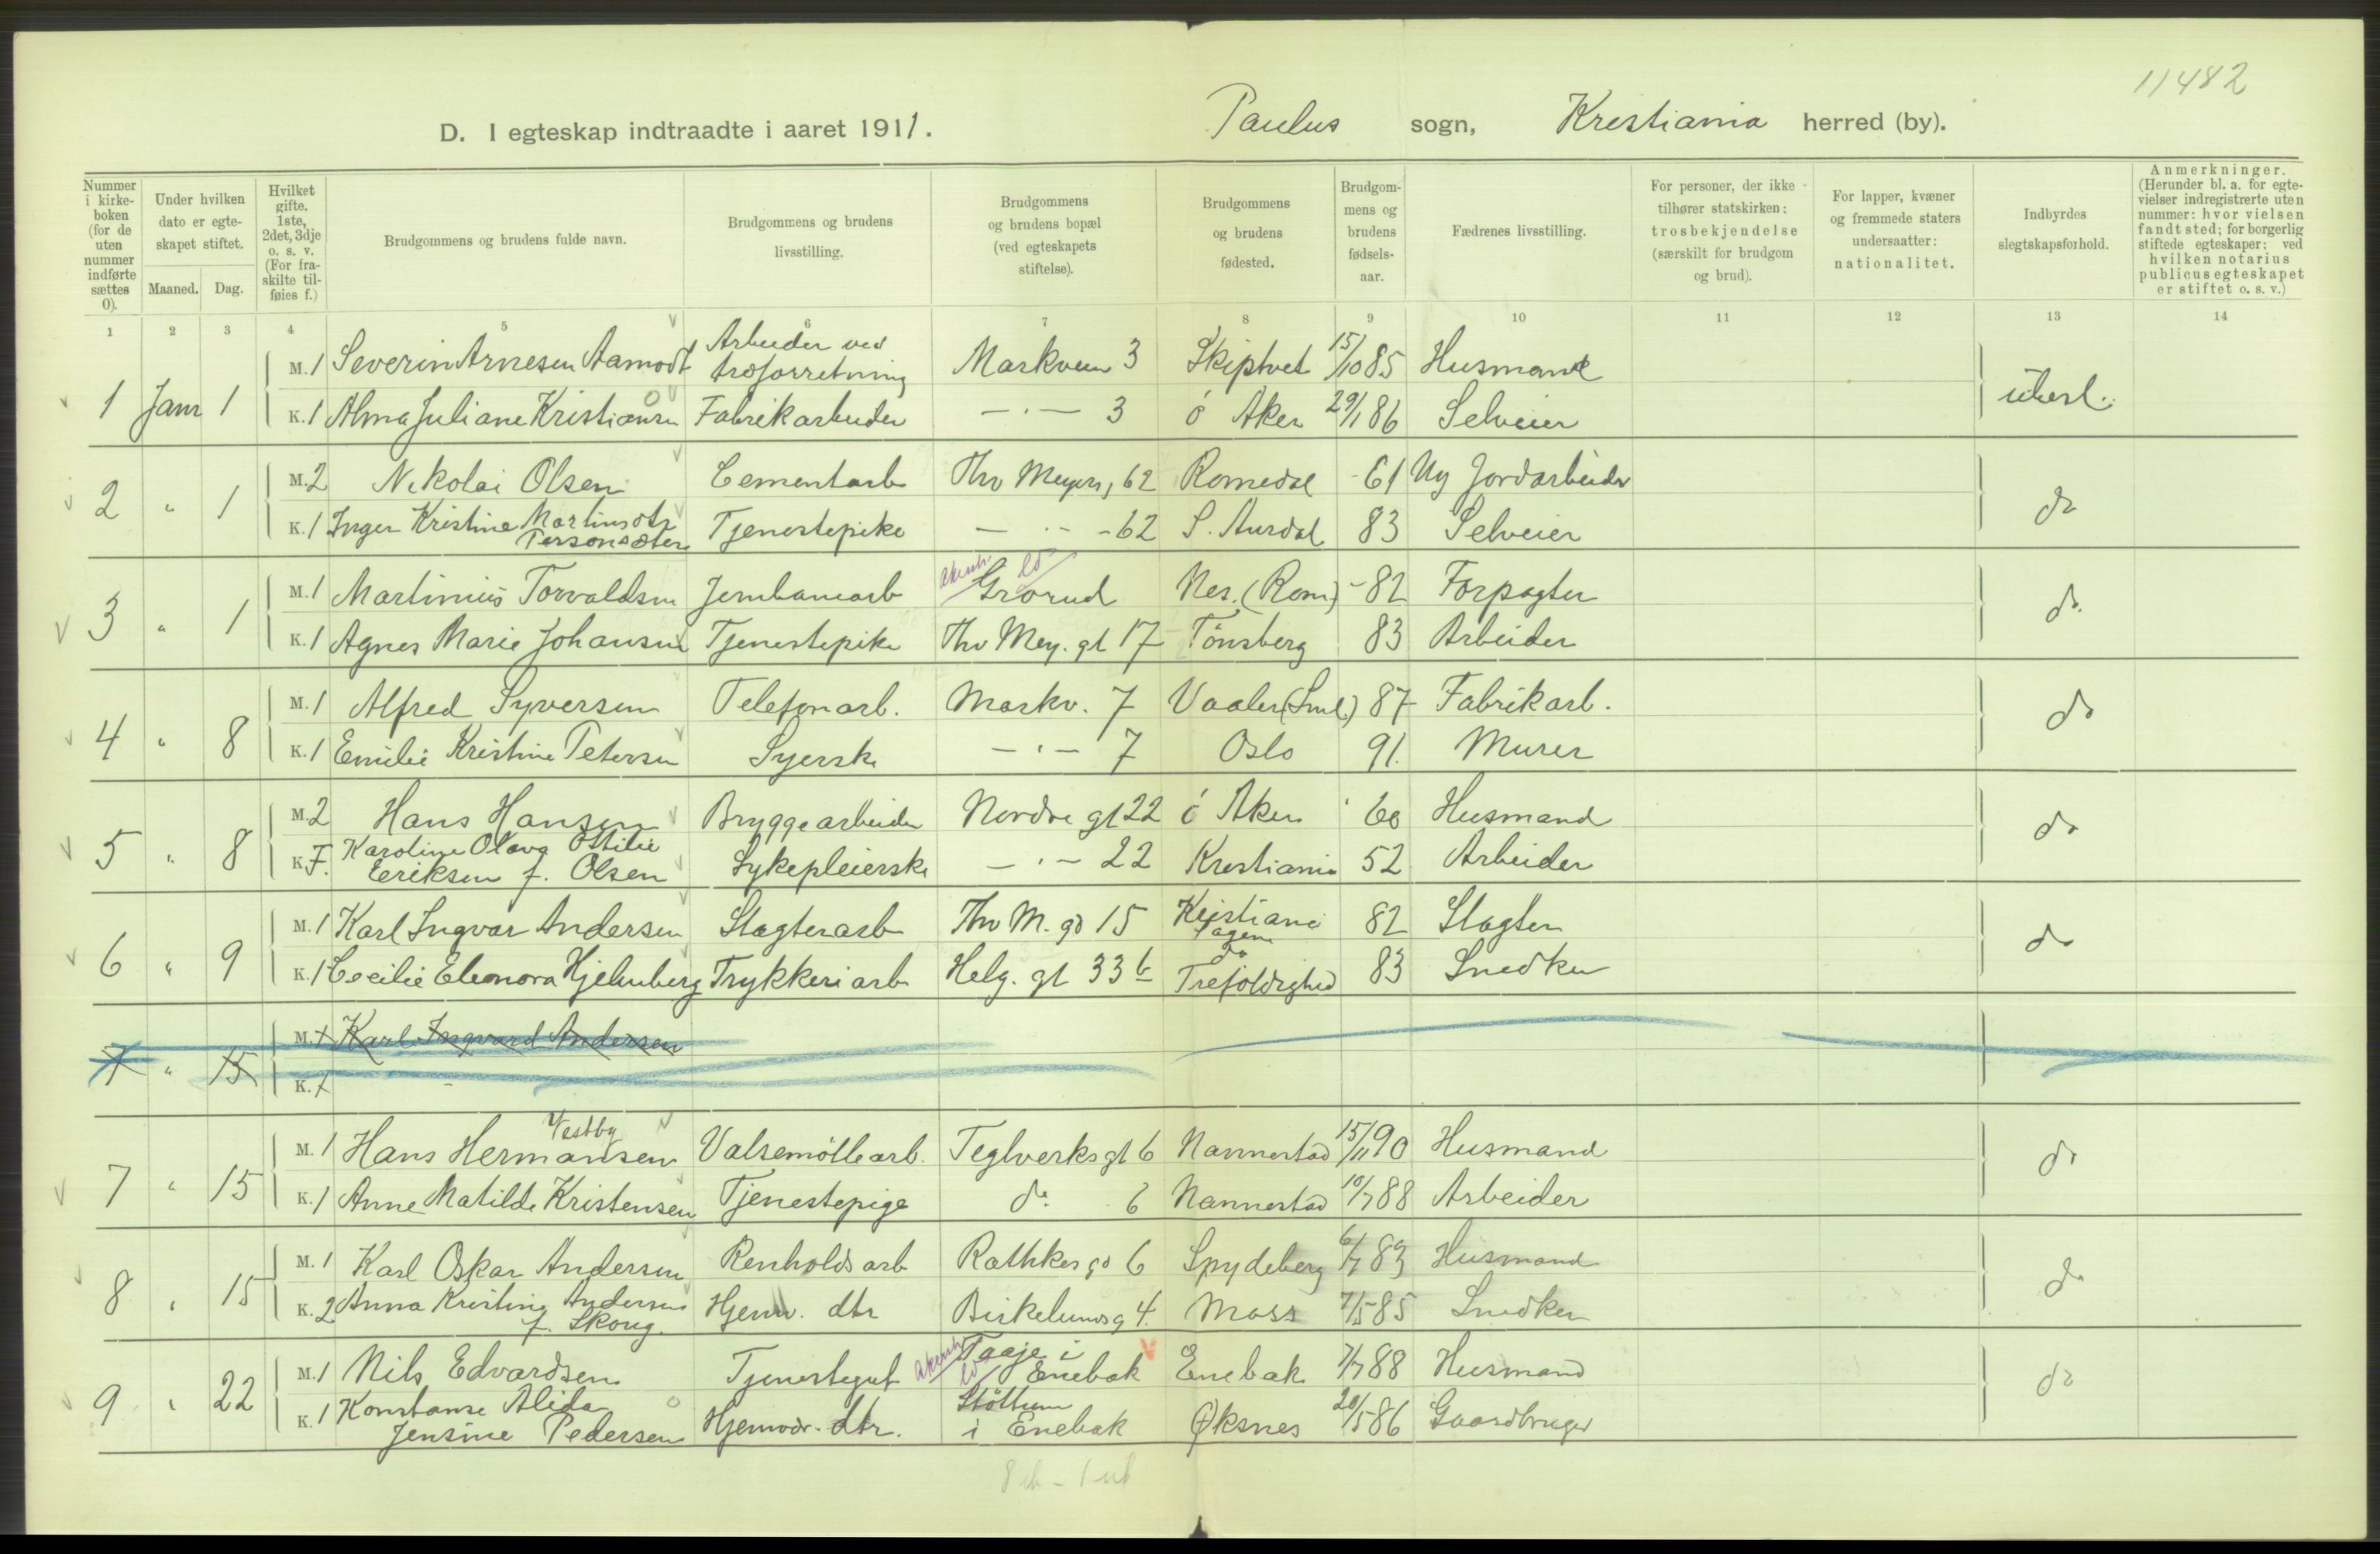 11482
D. I egteskap indtraadte i aaret 1911. Paulus sogn, Kristiania herred (by).
Nummer i kirkeboken (for de uten nummer indførte sættes 0).
Under hvilken dato er egteskapet stiftet.
Maaned. Dag.
Hvilket gifte. 1ste, 2det, 3dje o. s. v. (For fraskilte tilføies f.)
Brudgommens og brudens fulde navn.
Brudgommens og brudens livsstilling.
Brudgommens og brudens bopæl (ved egteskapets stiftelse).
Brudgommens og brudens fødested.
Brudgommens og brudens fødselsaar.
Fædrenes livsstilling.
For personer, der ikke tilhører statskirken: trosbekjendelse (særskilt for brudgom og brud).
For lapper, kvæner og fremmede staters undersaatter: nationalitet.
Indbyrdes slegtskapsforhold.
Anmerkninger. (Herunder bl. a. for egtevielser indregistrerte uten nummer: hvor vielsen fandt sted; for borgerlig stiftede egteskaper: ved hvilken notarius publicus egteskapet er stiftet o. s. v.)
1 2 3 4 5 6 7 8 9 10 11 12 13 14
M. 1 Severin Arnesen Aamodt Arbeider ved træforretning Markveien 3 Skiptvet 15/10 85 Husmand
1 Janr 1 ubesl.
K. 1 Alma Juliane Kristiansen Fabrikarbeider — " — 3 ö Aker 29/1 86 Selveier
M. 2 Nikolai Olsen Cementarb Thv Meyers, 62 Romedal - 61 Ug Jordarbeider
2 " 1 do
K. 1 Inger Kristine Martinsdtr Tjenestepike — " — 62 S. Aurdal 83 Selveier
M. 1 Martinius Torvaldsen Jernbanearb Akersh. Grorud Nes. (Rom) - 82 Forpagter
3 " 1 do
K. 1 Agnes Marie Johansen Tjenestepike Thv Mey. gt 17 Tönsberg 83 Arbeider
M. 1 Alfred Syversen Telefonarb. Markv. 7 Vaaler (Sml.) 87 Fabrikarb.
4 " 8 do
K. 1 Emilie Kristine Petersen Syerske — " — 7 Oslo 91. Murer
M. 2 Hans Hansen Bryggearbeider Nordre gt 22 ö Aker 60 Husmand
5 " 8 do
K. F. Karoline Olava Ottilie Eriksen f. Olsen Sykepleierske — " — 22 Kristiania 52 Arbeider
M. 1 Karl Ingvar Andersen Slagterarb Thv M. gd 15 Kristiania Jagern 82 Slagter
6 " 9 do
K. 1 Cecilie Eleonora Hjelmberg Trykkeriarb Helg. gt 33 b do Trefoldighed 83 Snedker
M. 1 Karl Ingvard Andersen
7 " 15
K. 1
M. 1 Hans Hermansen Vestby Valsemöllearb. Teglverksgt 6 Nannestad 15/11 90 Husmand
7 " 15 do
K. 1 Anne Matilde Kristensen Tjenestepige do 6 Nannestad 10/7 88 Arbeider
M. 1 Karl Oskar Andersen Renholdsarb Rathkes gd 6 Spydeberg 6/7 83 Husmand
8 " 15 do
K. 2 Anna Kristine Andersen f. Skoug. Hjemv. dtr Birkelundsg 4. Moss 7/5 85 Snedker
M. 1 Nils Edvardsen Tjenestegut Akersh. Taaje i Enebak Enebak 7/7 88 Husmand
9 " 22 do
K. 1 Konstanse Alida Jensine Pedersen Hjemvær. dtr. Stöttum i Enebak Øksnes 20/5 86 Gaardbruger